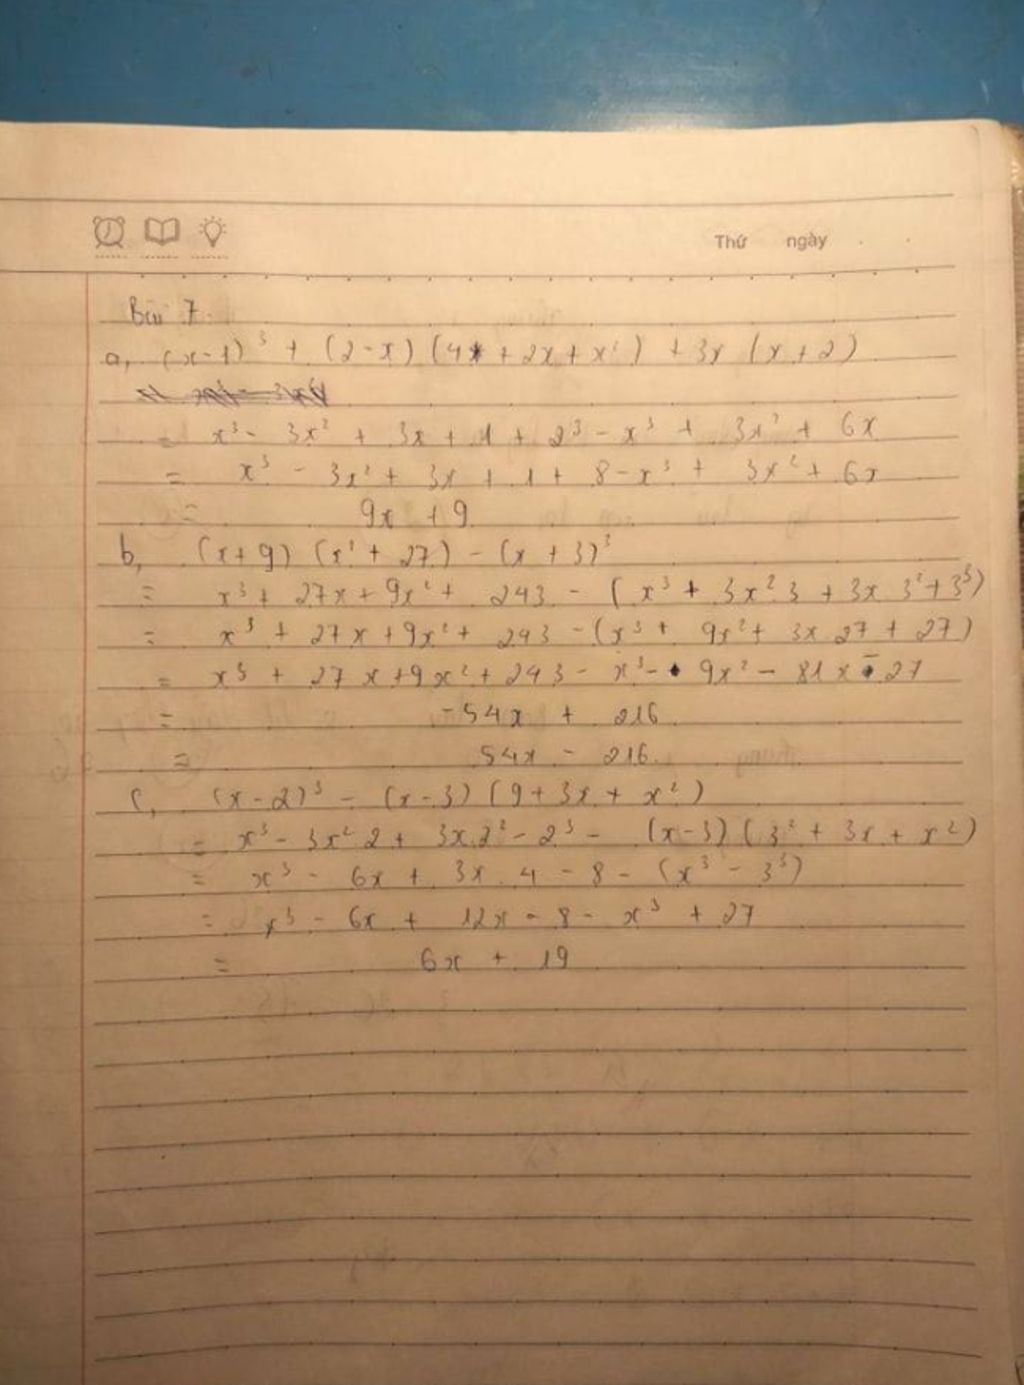 Thứ ngày
Bài 7.
a, (x-1)³ + (2-x) (4 + 2x + x²) + 3x (x+2)
= x³ - 3x² + 3x + 1 + 2³ - x³ + 3x² + 6x
= x³ - 3x² + 3x + 1 + 8 - x³ + 3x² + 6x
= 9x + 9
b, (x+9) (x² + 27) - (x + 3)³
= x³ + 27x + 9x² + 243 - (x³ + 3x² 3 + 3x 3² + 3³)
= x³ + 27x + 9x² + 243 - (x³ + 9x² + 3x 27 + 27)
= x³ + 27x + 9x² + 243 - x³ - 9x² - 81x - 27
= -54x + 216
= 54x - 216.
c, (x-2)³ - (x-3) (9 + 3x + x²)
= x³ - 3x² 2 + 3x.2² - 2³ - (x-3) (3² + 3x + x²)
= x³ - 6x + 3x . 4 - 8 - (x³ - 3³)
= x³ - 6x + 12x - 8 - x³ + 27
= 6x + 19